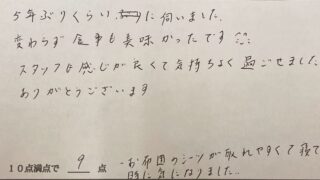 5年ぶりくらいに伺いました。
変わらず食事も美味かったです
スタッフも感じが良くて気持ちよく過ごせました。
ありがとうございます
10点満点で 9 点
・お布団のシーツが取れやすくて寝て
時に気になりました…